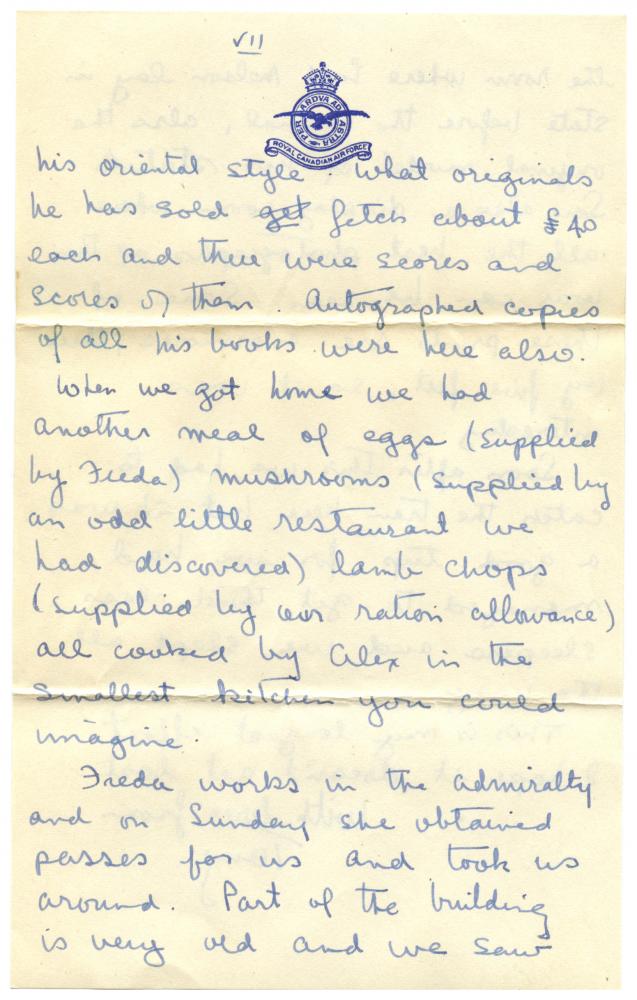 VII
PER ARDVA AD ASTRA
ROYAL CANADIAN AIR FORCE
his oriental style. What originals
he has sold get fetch about £40
each and there were scores and
scores of them. Autographed copies
of all his books were here also.
When we got home we had
another meal of eggs (supplied
by Freda) mushrooms (supplied by
an odd little restaurant we
had discovered) lamb chops
(supplied by our ration allowance)
all cooked by Alex in the
smallest kitchen you could
imagine.
Freda works in the admiralty
and on Sunday, she obtained
passes for us and took us
around. Part of the building
is very old and we saw